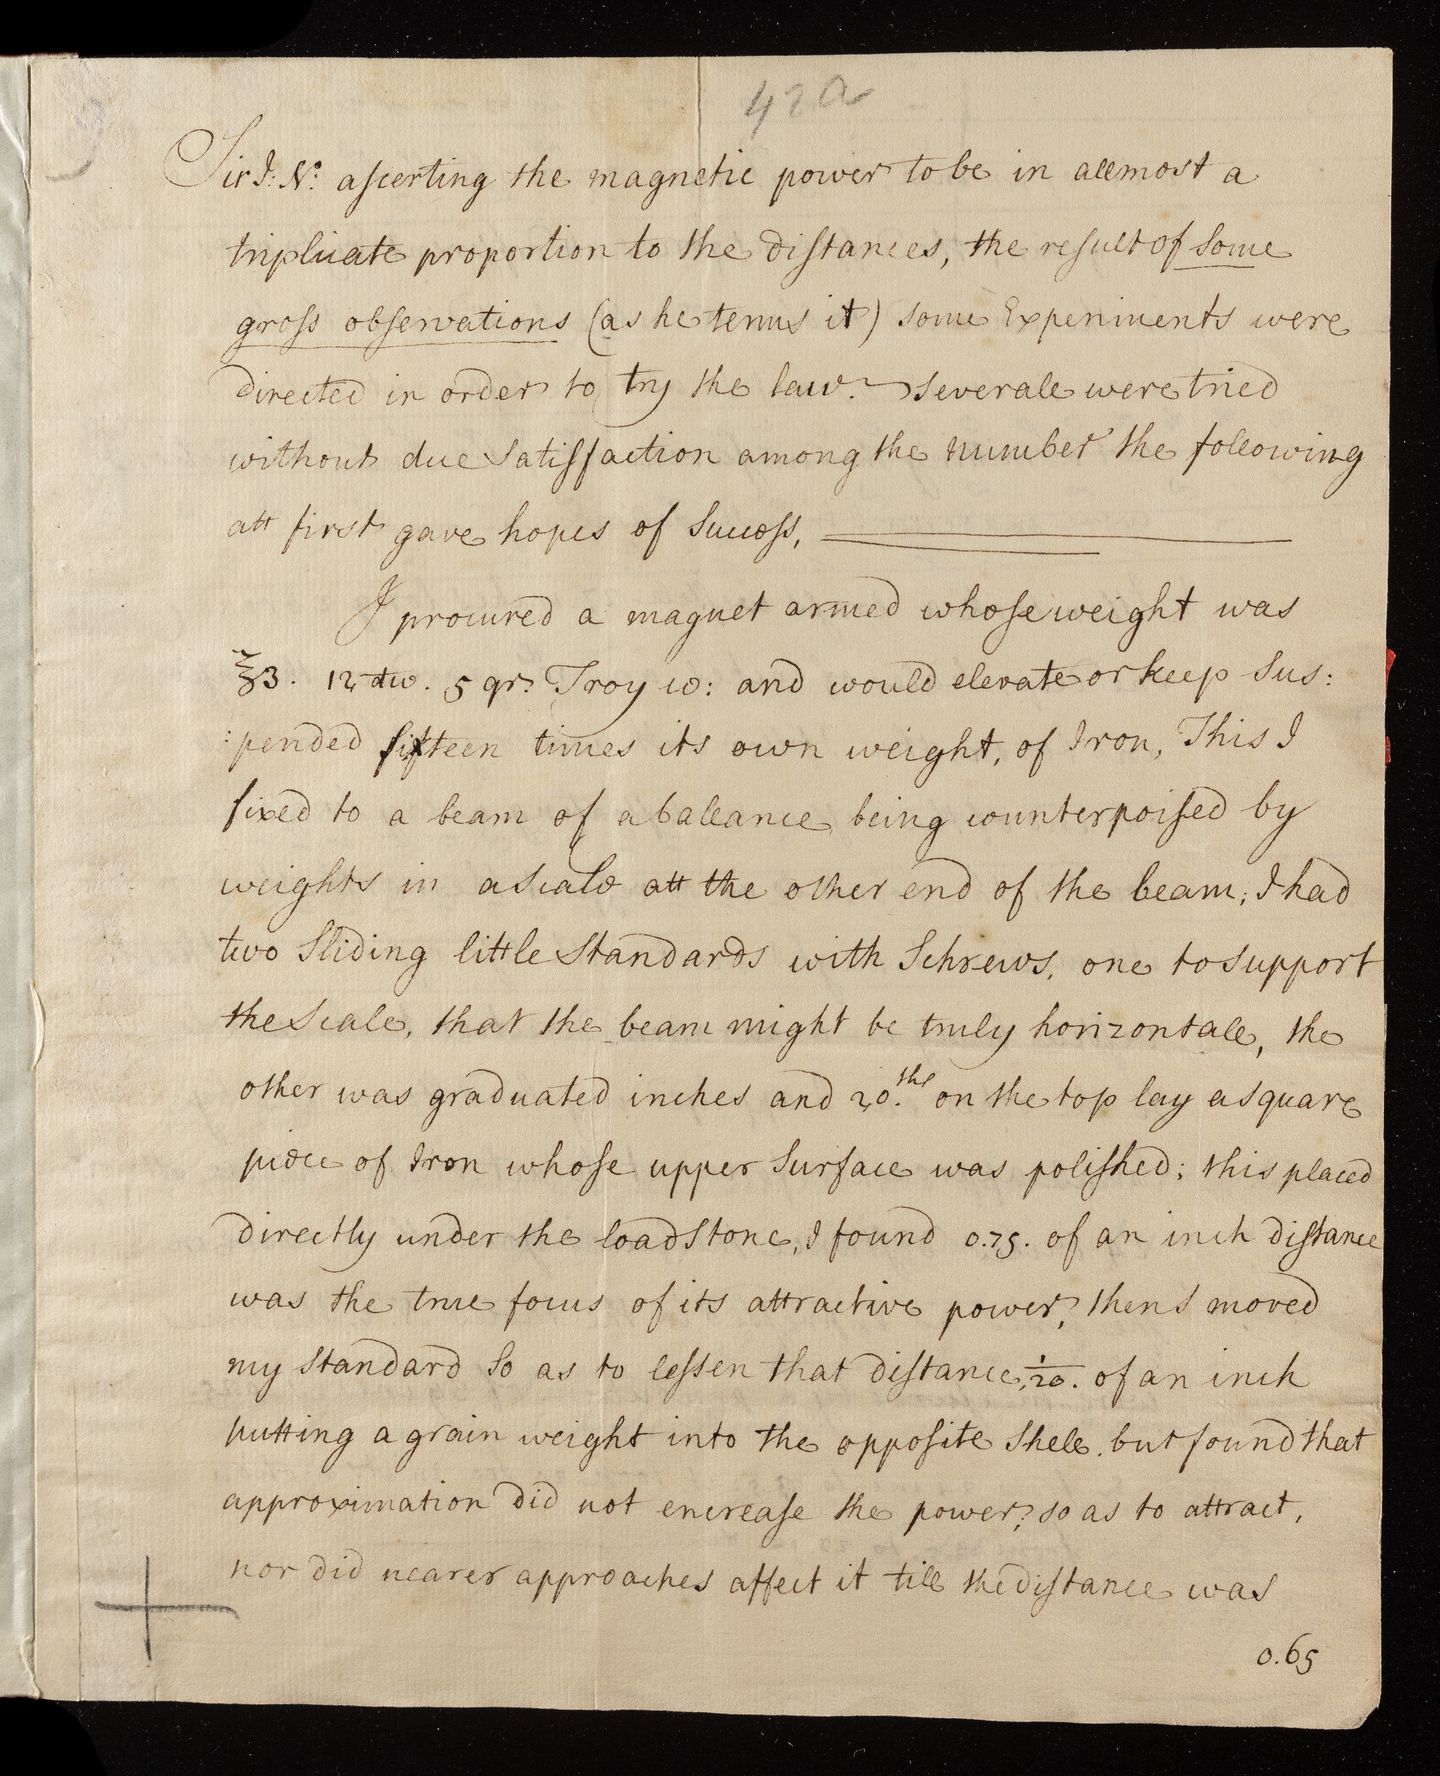 42a
Sir I: N.o aſcerting the magnetic power to be in allmost a
triplicate proportion to the diſtances, the reſult of some
groſs obſervations (as he terms it) some Experiments were
directed in order to try the law. severale were tried
without due satiſfaction among the number the following
att first gave hopes of Succeſs,
I procured a magnet armed whoſe weight was
℥3. 12 dw. 5 gr. Troy w: and would elevate or keep sus:
:pended fifteen times its own weight, of Iron, This I
fixed to a beam of a ballance being counterpoiſed by
weights in a scale att the other end of the beam; I had
two Sliding little Standards with Schrews, one to support
the Scale, that the beam might be truly horizontale, the
other was graduated inches and 20.ths on the top lay a square
piece of Iron whoſe upper Surface was poliſhed; this placed
directly under the loadstone, I found 0.75. of an inch diſtance
was the true focus of its attractive power, then I moved
my Standard So as to leſsen that diſtance, 1/20. of an inch
putting a grain weight into the oppoſite Shele. but found that
approximation did not encreaſe the power, so as to attract,
nor did nearer approaches affect it till the diſtance was
0.65